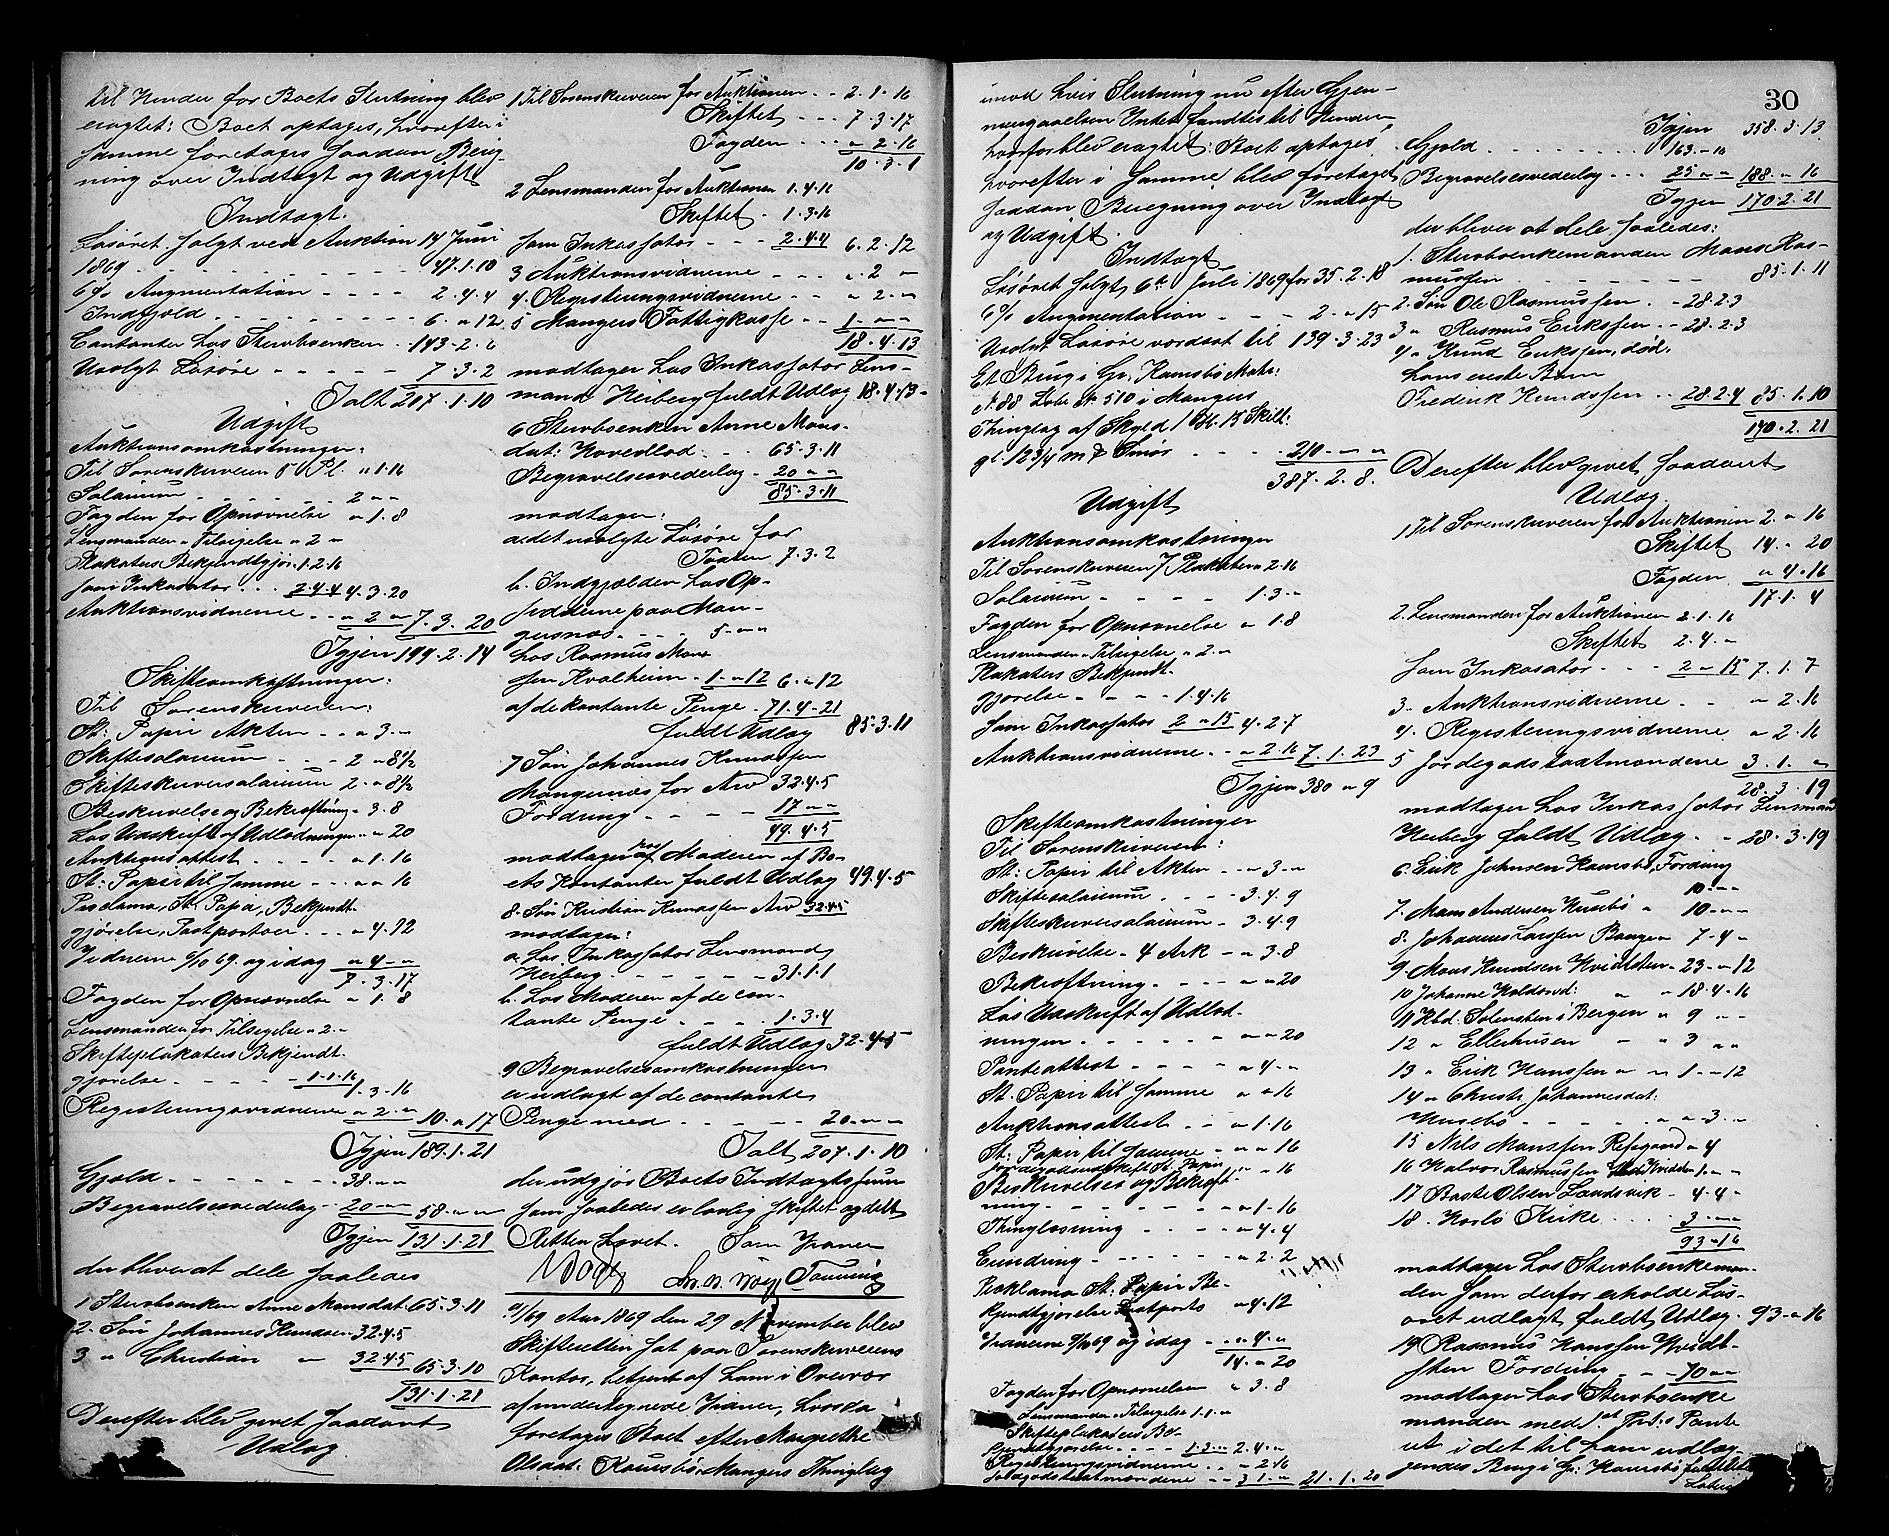 til Hinder for Boets Slutning blev
eragtet: Boet optages, hvorefter i
samme foretages saadan Bereg-
ning over Indtægt og Udgift
Indtægt.
Løsøret solgt ved Auktion 14 Juni
1869 47.1.10
6% Augmentation 2.4.4
Indgjæld 6 " 12
Contanter hos Stervboenken 143.2.6
Usolgt Løsøre 7.3.2
Ialt 207.1.10
Udgift
Auktionsomkostninger:
Til Sorenskriveren 5 Pl. " 1.16
Salarium 2 " "
Fogden for Opnævnelse " 1.8
Lensmanden " Tilsigelse " 2 "
Plakaters Bekjendtgjør. 1.2.16
som Inkasator 2.4.4 4.3.20
Auktionsvidnerne " 2 " 7.3.20
Igjen 199.2.14
Skifteomkostninger:
Til Sorenskriveren:
St: Papir Akten " 3 "
Skiftesalarium 2 " 8½
Skifteskriversalarium 2 " 8½
Beskrivelse og Bekræftning " 3.8
Løs Udskrift af Udlodningen " " 20
Auktionsattest " 1.16
St: Papir til samme " " 16
Proclama, St: Papir, Bekjendt-
gjørelse, Postportoer " 4.12
Vidnerne 9/10 69 og idag " 4 "
7.3.17
Fogden for Opnævnelse " 1.8
Lensmanden for Tilsigelse " 2 "
Skifteplakaters Bekjendt-
gjørelse 1.1.16
1.3.16
Registeringsvidnerne " 2 " 10 " 17
Igjen 189.1.21
Gjæld 38 " "
Begravelsesvederlag 20 " " 58 " "
Igjen 131.1.21
der bliver at dele saaledes
1 Stervboenken Anne Monsdat: 65.3.11
2. Søn Johannes Knudsen 32.4.5
3 " Christian " 32.4.5 65.3.10
131.1.21
Derefter blev givet saadant
Udlæg
1 Til Sorenskriveren for Auktionen 2.1.16
Skiftet 7.3.17
Fogden " 2.16
10.3.1
2 Lensmanden for Auktionen 1.4.16
Skiftet 1.3.16
som Inkassator 2.4.4 6.2.12
3 Auktionsvidnerne " 2 "
4. Registeringsvidnerne " 2 "
5 Mangers Fattigkasse 1 " "
18.4.13
modtager hos Inkassator Lens-
mand Heiberg fuldt Udlæg 18.4.13
6 Stervboenken Anne Mons-
dat: Hovedlod 65.3.11
Begravelsesvederlag 20 " "
85.3.11
modtager:
a. det usolgte Løsøre for
Taxten 7.3.2
b. Indgjælden hos Op-
sidderne paa Man-
gersnæs 5 " "
hos Rasmus Mons-
sen Kvalheim 1 " 12 6 " 12
af de kontante Penge 71.4.21
fuldt Udlæg 85.3.11
7 Søn Johannes Knudssen
Mangersnæs for Arv 32.4.5
Fordring 17 " "
49.4.5
modtager hos Moderen af Bo-
ets Kontanter fuldt Udlæg 49.4.5
8. Søn Kristian Knudssen Arv 32.4.5
modtager:
a. hos Inkassator Lensmand
Heiberg 31.1.1
b. hos Moderen af de con-
tante Penge 1.3.4
fuldt Udlæg 32.4.5
9 Begravelsesomkostningen
er udlagt af de contante
Penge med 20 " "
Ialt 207.1.10
der udgjør Boets Indtægtssum
som saaledes er lovlig skiftet og delt
Retten hævet. Som Vidner
9/69 Aar 1869 den 29 November blev
Skifteretten sat paa Sorenskriverens
Kontor, betjent af ham i Overvær
af undertegnede Vidner, hvorda
foretages Boet efter Margrethe
Olsdat: Ramsbø Mangers Thinglag
30
imod hvis Slutning nu efter Gjen-
nemgaaelsen Intet fandtes til Hinder,
hvorfor blev eragtet: Boet optages
hvorefter i samme blev foretaget
saadan Beregning over Indtægt
og Udgift.
Indtægt
Løsøret solgt 6te Juli 1869 for 35.2.18
6% Augmentation 2 " 15
Usolgt Løsøre vordsat til 139.3.23
Et Brug i Gr. Ramsbø Matr:
N. 88 Løbe N. 510 i Mangers
Thinglag af Skyld
gl. 12¾ m℔ Smør 210 " "
387.2.8.
Udgift
Auktionsomkostninger
Til Sorenskriveren 7 Plakater " 2.16
Salarium 1.3 "
Fogden for Opnævnelse " 1.8
Lensmanden " Tilsigelse " 2 "
Plakaters Bekjendt-
gjørelse 1.4.16
som Inkassator 2 " 15 4.2.7
Auktionsvidnerne " 2.16 7.1.23
Igjen 380 " 9
Skifteomkostninger
Til Sorenskriveren:
St: Papir til Akten " 3 "
Skiftesalarium 3.4.9
Skifteskriversalarium 3.4.9
Beskrivelse 4 Ark " 3.8
Bekræftning " " 20
Løs Udskrift af Udlod-
ningen " " 20
Panteattest " 4 "
St. Papir til samme " " 16
Auktionsattest " 1.16
St: Papir til samme " " 16
Jordegodsudskift St. Papir " " 16
Beskrivelse og Bekræft-
ning " 1.16
Thinglæsning " 4.4
Grundring " 2.2
Proklama St: Papir Be-
kjendtgjørelse Postporto " 4.12
Vidnerne 9/10 69 og idag " 4 "
14 " 20
Fogden for Opnævnelsen " 3.8
Lensmanden " Tilsigelse 1.1 "
Skifteplakaters Be-
kjendtgjørelse 1.3 " 2.4 "
Registeringsvidnerne " 2.16
Jordegodstaxtmændene 3.1 " 21.1.20
Igjen 358.3.13
Gjæld 163 " 16
Begravelsesvederlag 25 " " 188 " 16
Igjen 170.2.21
der bliver at dele saaledes:
1. Stervboenkemanden Mons Ras-
mussen 85.1.11
2. Søn Ole Rasmussen 28.2.3
3 " Rasmus Erikssen 28.2.3
4 " Knud Erikssen, død,
hans eneste Barn
Frederik Knudssen 28.2.4 85.1.10
170.2.21
Derefter blev givet saadant
Udlæg.
1 Til Sorenskriveren for Auktionen 2 " 16
Skiftet 14 " 20
Fogden " 4.16
17.1.4
2. Lensmanden for Auktionen 2.1.16
Skiftet 2.4 "
som Inkasator 2 " 15 7.1.7
3. Auktionsvidnerne " 2.16
4. Registeringsvidnerne " 2.16
5 Jordegodstaxtmændene 3.1. "
28.3.19
modtager hos Inkassator Lensmand
Heiberg fuldt Udlæg 28.3.19
6. Erik Johnsen Ramsbø, Fordring
10 " "
7. Mons Andersen Husebø " 10 " "
8. Johannes Larssen Bauge " 7.4 "
9 Mons Knudsen Hvidsten 23 " 12
10 Johanne Haldorsd: " " 18.4.16
11 Kbd. Solensten i Bergen " 9 " "
12 " Ellerhusen " 3 " "
13 " Erik Hanssen " " 1 " 12
14 " Christi Johannesdat:
Husebø " " 3 "
15 Nils Monssen Refsgaard " 4
16 Halvor Rasmussen Hvidsten 1 " "
17 Baste Olsen Landsvik 4.4 "
18. Herlø Kirke 3 " "
93 " 16
modtager hos Stervboenkeman-
den som derfor erholder Løs-
øret udlagt fuldt Udlæg 93 " 16
19 Rasmus Hanssen Hvidt-
sten Fordring 70 " "
modtager hos Stervboenke
manden med 1ste Pr.: Pante
ret i det til ham udlæg-
gendes Brug i Gr: Ramsbø fuldt